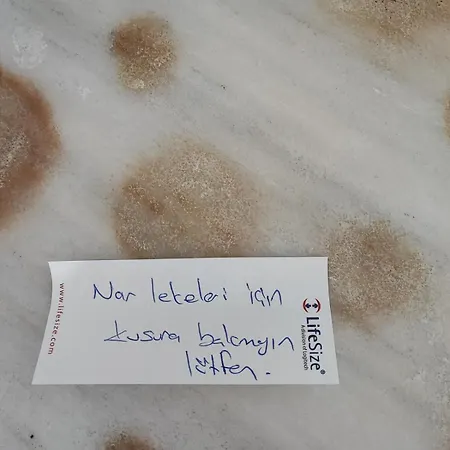 Nar lekeleri için
kusura bakmayın
lütfen.
www.lifesize.com
LifeSize®
A division of Logitech